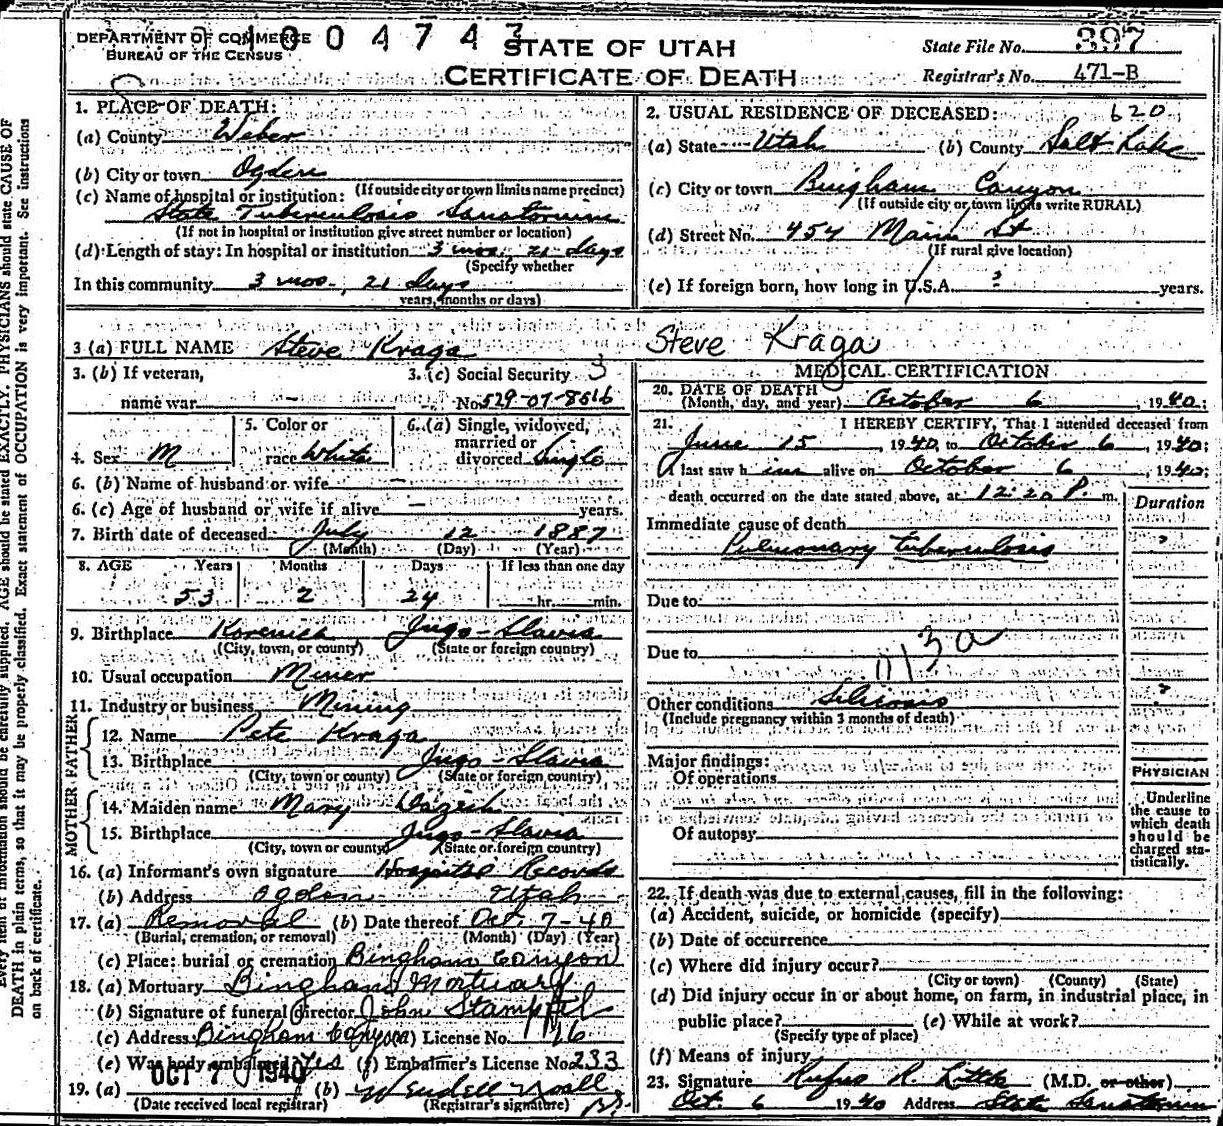 DEPARTMENT OF COMMERCE
BUREAU OF THE CENSUS
1004743
STATE OF UTAH
CERTIFICATE OF DEATH
State File No. 397
Registrar's No. 471-B
1. PLACE OF DEATH:
(a) County Weber
(b) City or town Ogden
(If outside city or town limits name precinct)
(c) Name of hospital or institution:
State Tuberculosis Sanatorium
(If not in hospital or institution give street number or location)
(d) Length of stay: In hospital or institution 3 mos. 21 days
(Specify whether
In this community 3 mos., 21 days
years, months or days)
2. USUAL RESIDENCE OF DECEASED: 620
(a) State Utah (b) County Salt Lake
(c) City or town Bingham Canyon
(If outside city or town limits write RURAL)
(d) Street No. 454 Main St
(If rural give location)
(e) If foreign born, how long in U.S.A. ? years.
3 (a) FULL NAME Steve Kraga Steve Kraga
3. (b) If veteran,
name war -
3. (c) Social Security 3
No. 529-07-8516
4. Sex M
5. Color or
race White
6. (a) Single, widowed,
married or
divorced Single
6. (b) Name of husband or wife -
6. (c) Age of husband or wife if alive - years.
7. Birth date of deceased July 12 1887
(Month) (Day) (Year)
8. AGE Years Months Days If less than one day
53 2 24 hr. min.
9. Birthplace Korenica Jugo-Slavia
(City, town, or county) (State or foreign country)
10. Usual occupation Miner
11. Industry or business Mining
FATHER
12. Name Pete Kraga
13. Birthplace Jugo-Slavia
(City, town or county) (State or foreign country)
MOTHER
14. Maiden name Mary
15. Birthplace Jugo-Slavia
(City, town or county) (State or foreign country)
16. (a) Informant's own signature Hospital Records
(b) Address Ogden Utah
17. (a) Removal (b) Date thereof Oct. 7-40
(Burial, cremation, or removal) (Month) (Day) (Year)
(c) Place: burial or cremation Bingham Canyon
18. (a) Mortuary Bingham Mortuary
(b) Signature of funeral director John Stampfel
(c) Address Bingham Canyon (d) License No. 116
(e) Was body embalmed? Yes (f) Embalmer's License No. 233
19. (a) OCT 7 1940 (b) Wendell Noall
(Date received local registrar) (Registrar's signature)
MEDICAL CERTIFICATION
20. DATE OF DEATH
(Month, day, and year) October 6, 1940;
21. I HEREBY CERTIFY, That I attended deceased from
June 15, 1940 to October 6, 1940;
I last saw him alive on October 6, 1940;
death occurred on the date stated above, at 12:20 P. m.
Duration
Immediate cause of death
Pulmonary tuberculosis ?
Due to
Due to
13a
Other conditions Silicosis ?
(Include pregnancy within 3 months of death)
Major findings:
Of operations
Of autopsy
PHYSICIAN
Underline
the cause to
which death
should be
charged sta-
tistically.
22. If death was due to external causes, fill in the following:
(a) Accident, suicide, or homicide (specify)
(b) Date of occurrence
(c) Where did injury occur?
(City or town) (County) (State)
(d) Did injury occur in or about home, on farm, in industrial place, in
public place? (e) While at work?
(Specify type of place)
(f) Means of injury
23. Signature Rufus R. Little (M.D. or other)
Oct. 6 1940 Address State Sanatorium
DEATH in plain terms, so that it may be properly classified. Exact statement of OCCUPATION is very important. See instructions
on back of certificate.